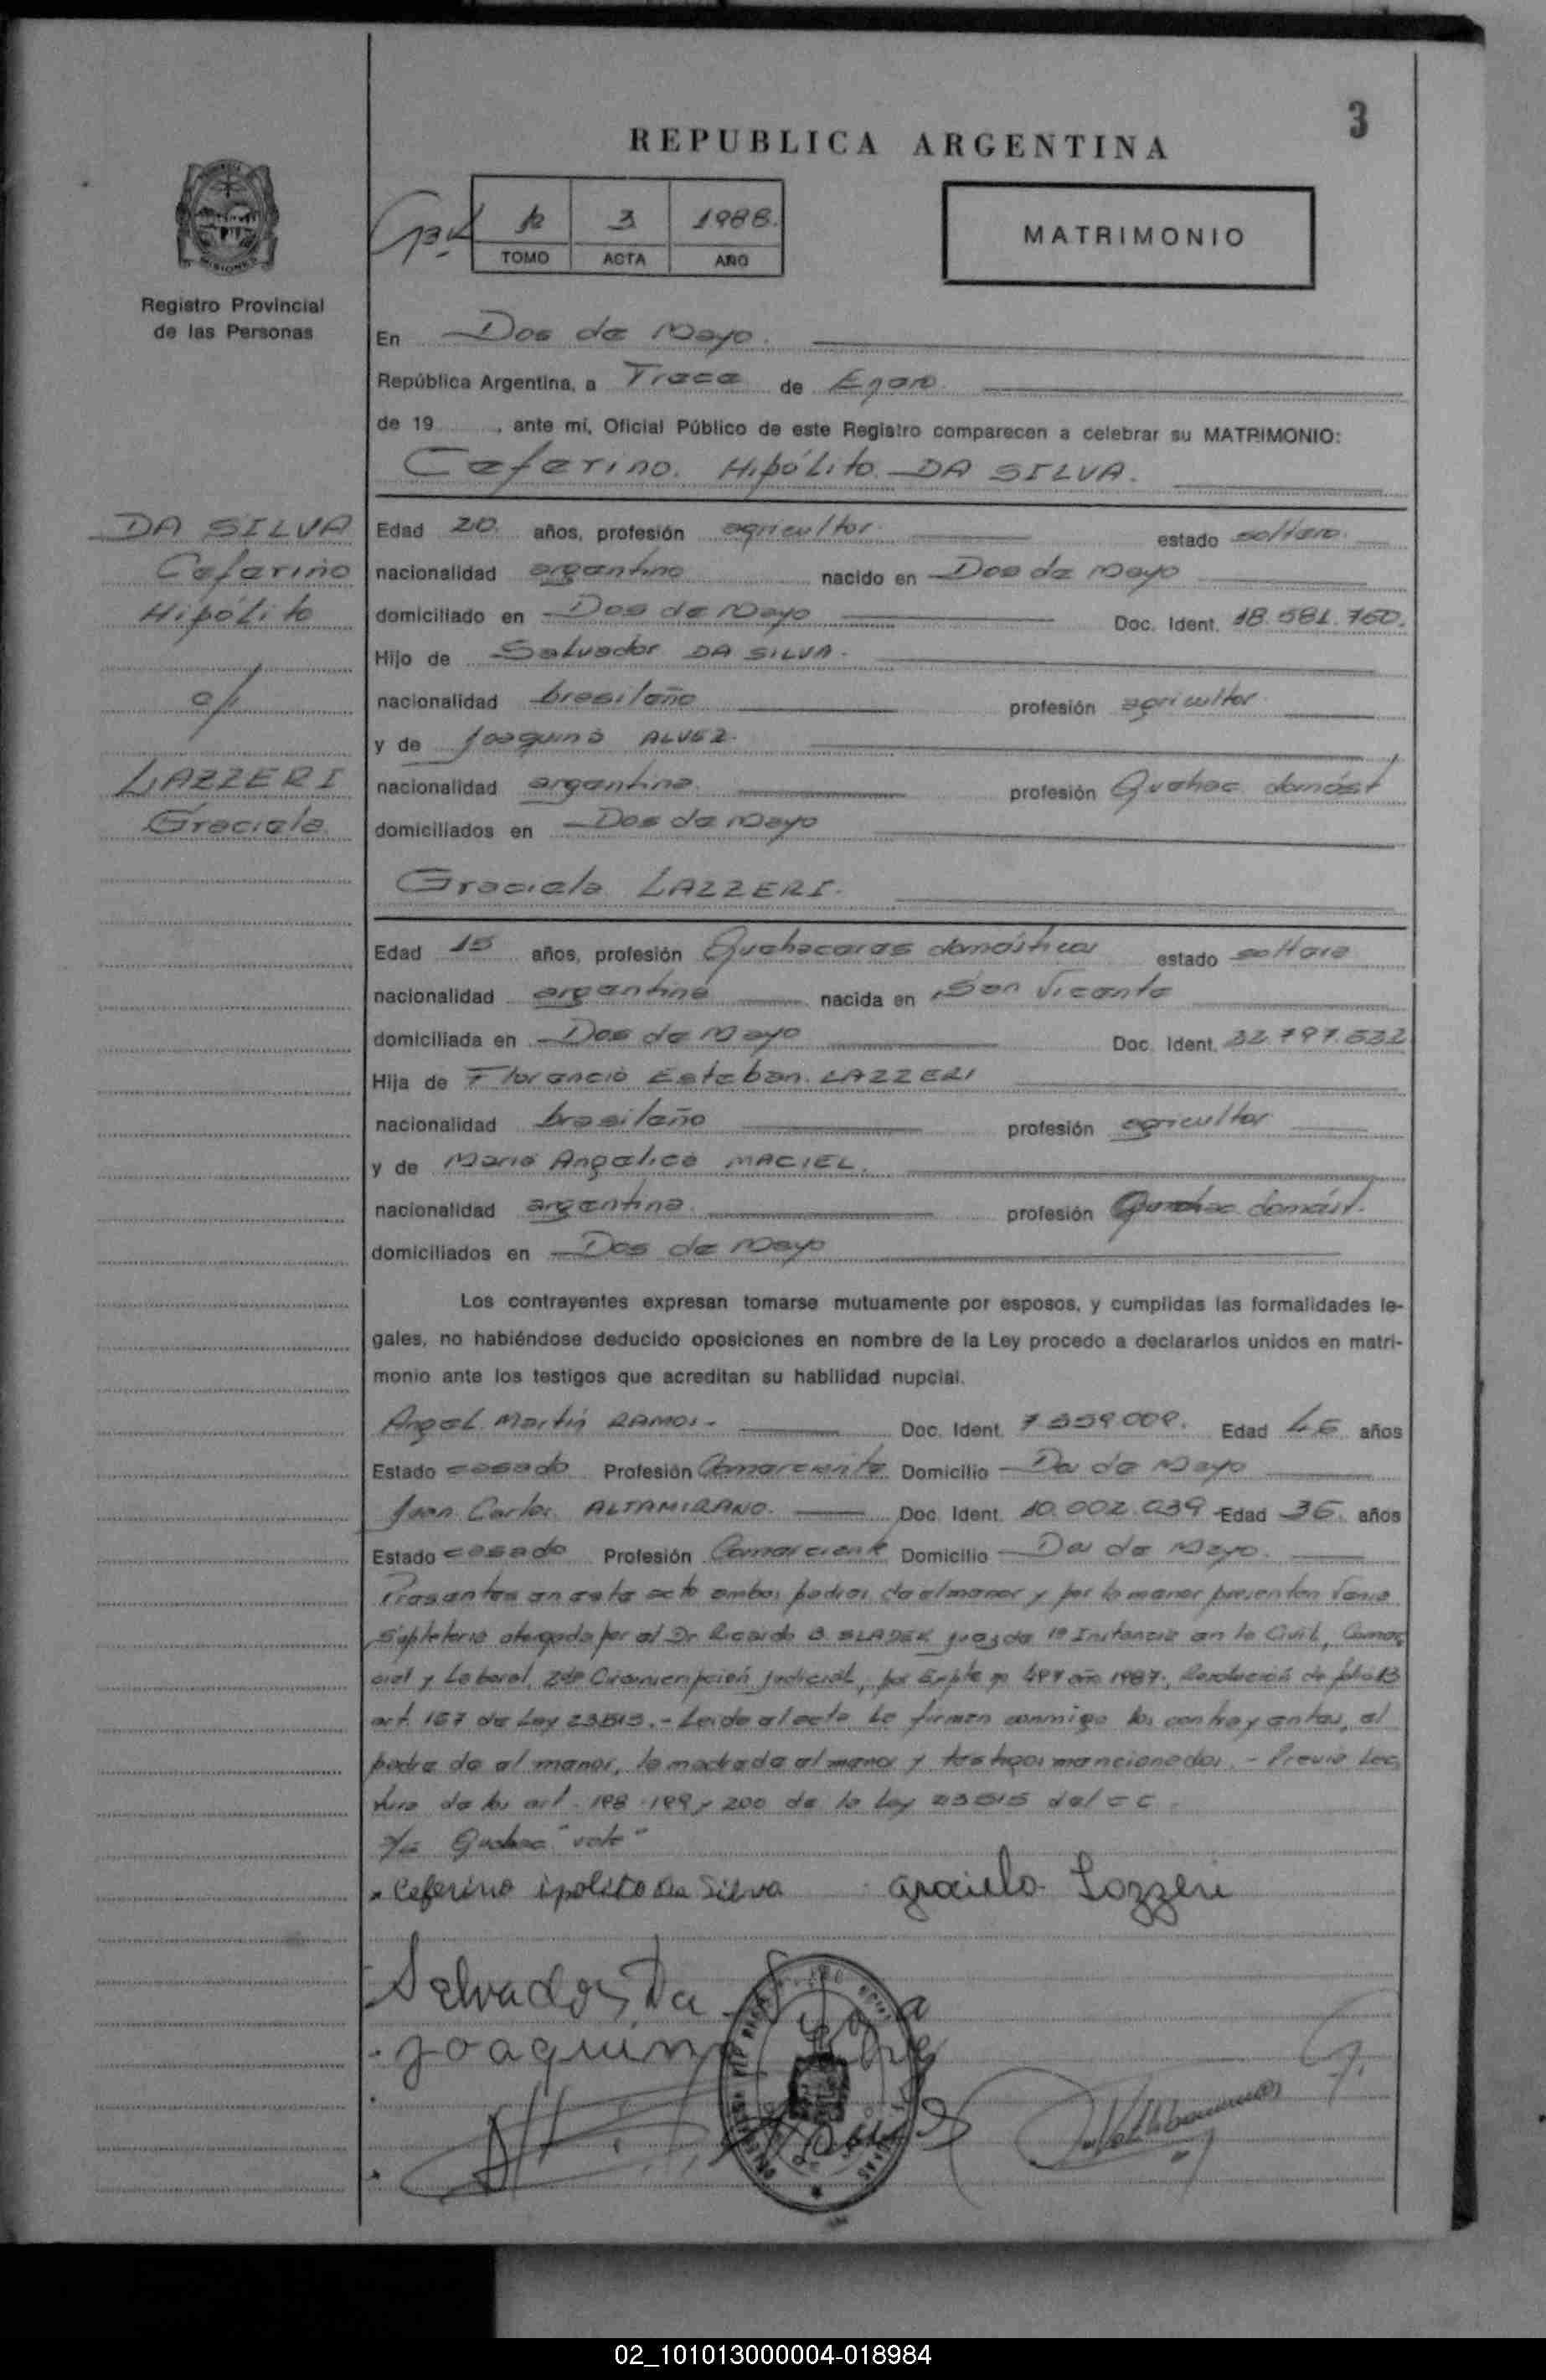 3
REPUBLICA ARGENTINA
3 1988.
TOMO ACTA AÑO
MATRIMONIO
MISIONES
Registro Provincial
de las Personas
En Dos de Mayo.
República Argentina, a Trece de Enero
de 19 , ante mí, Oficial Público de este Registro comparecen a celebrar su MATRIMONIO:
Ceferino. Hipólito DA SILVA.
DA SILVA
Ceferino
Hipólito
c/
LAZZERI
Graciela
Edad 20 años, profesión agricultor estado soltero
nacionalidad argentino nacido en Dos de Mayo
domiciliado en Dos de Mayo Doc. Ident. 18.581.760.
Hijo de Salvador DA SILVA.
nacionalidad brasileño profesión agricultor
y de Joaquina ALVEZ.
nacionalidad argentina profesión Quehac domést
domiciliados en Dos de Mayo
Graciela LAZZERI.
Edad 15 años, profesión Quehaceres domésticos estado soltera
nacionalidad argentina nacida en San Vicente
domiciliada en Dos de Mayo Doc. Ident. 32.797.532
Hija de Florencio Esteban LAZZERI
nacionalidad brasileño profesión agricultor
y de Maria Angelica MACIEL.
nacionalidad argentina profesión Quehac domést.
domiciliados en Dos de Mayo
Los contrayentes expresan tomarse mutuamente por esposos, y cumplidas las formalidades le-
gales, no habiéndose deducido oposiciones en nombre de la Ley procedo a declararlos unidos en matri-
monio ante los testigos que acreditan su habilidad nupcial.
Angel Martin RAMOS.- Doc. Ident. 7.559.009. Edad 46 años
Estado casado Profesión Comerciante Domicilio Dos de Mayo
Juan Carlos ALTAMIRANO. Doc. Ident. 10.002.039 Edad 36 años
Estado casado Profesión Comerciante Domicilio Dos de Mayo.
Presentes en este acto ambos padres de el menor y por la menor presentan Venia
Supletoria otorgada por el Dr Ricardo B. SLADEK Juez de 1º Instancia en lo Civil, Comer
cial y Laboral, 2da Circunscripción Judicial, por Expte nº 497 año 1987, Resolución de folio 13
art. 167 de Ley 23515.- Leida el acta la firman conmigo los contrayentes, el
padre de el menor, la madre de el menor y testigos mencionados.- Previa lec
tura de los art. 198-199 y 200 de la Ley 23515 del C C.
Quehac "vale"
Ceferino ipolito Da Silva Graciela Lazzeri
Salvador Da Silva
Joaquina
02_101013000004-018984